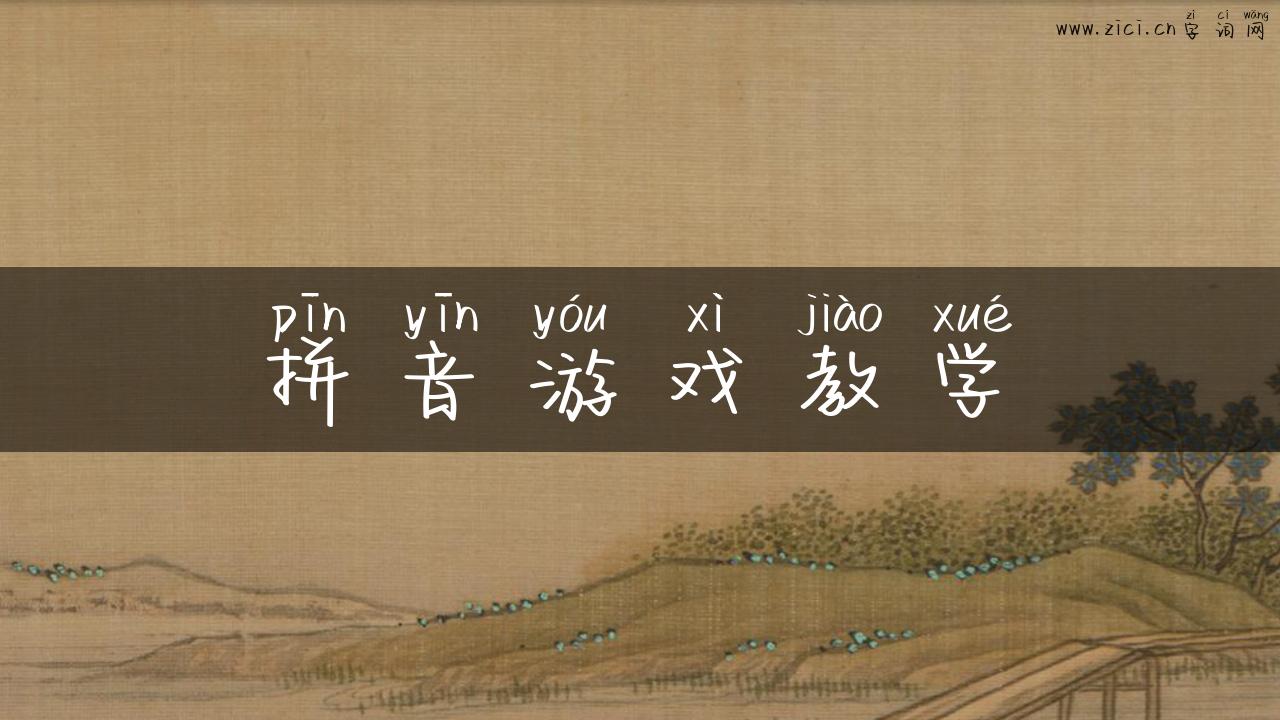 zì cí wǎng
www.zici.cn字词网
pīn yīn yóu xì jiào xué
拼音游戏教学